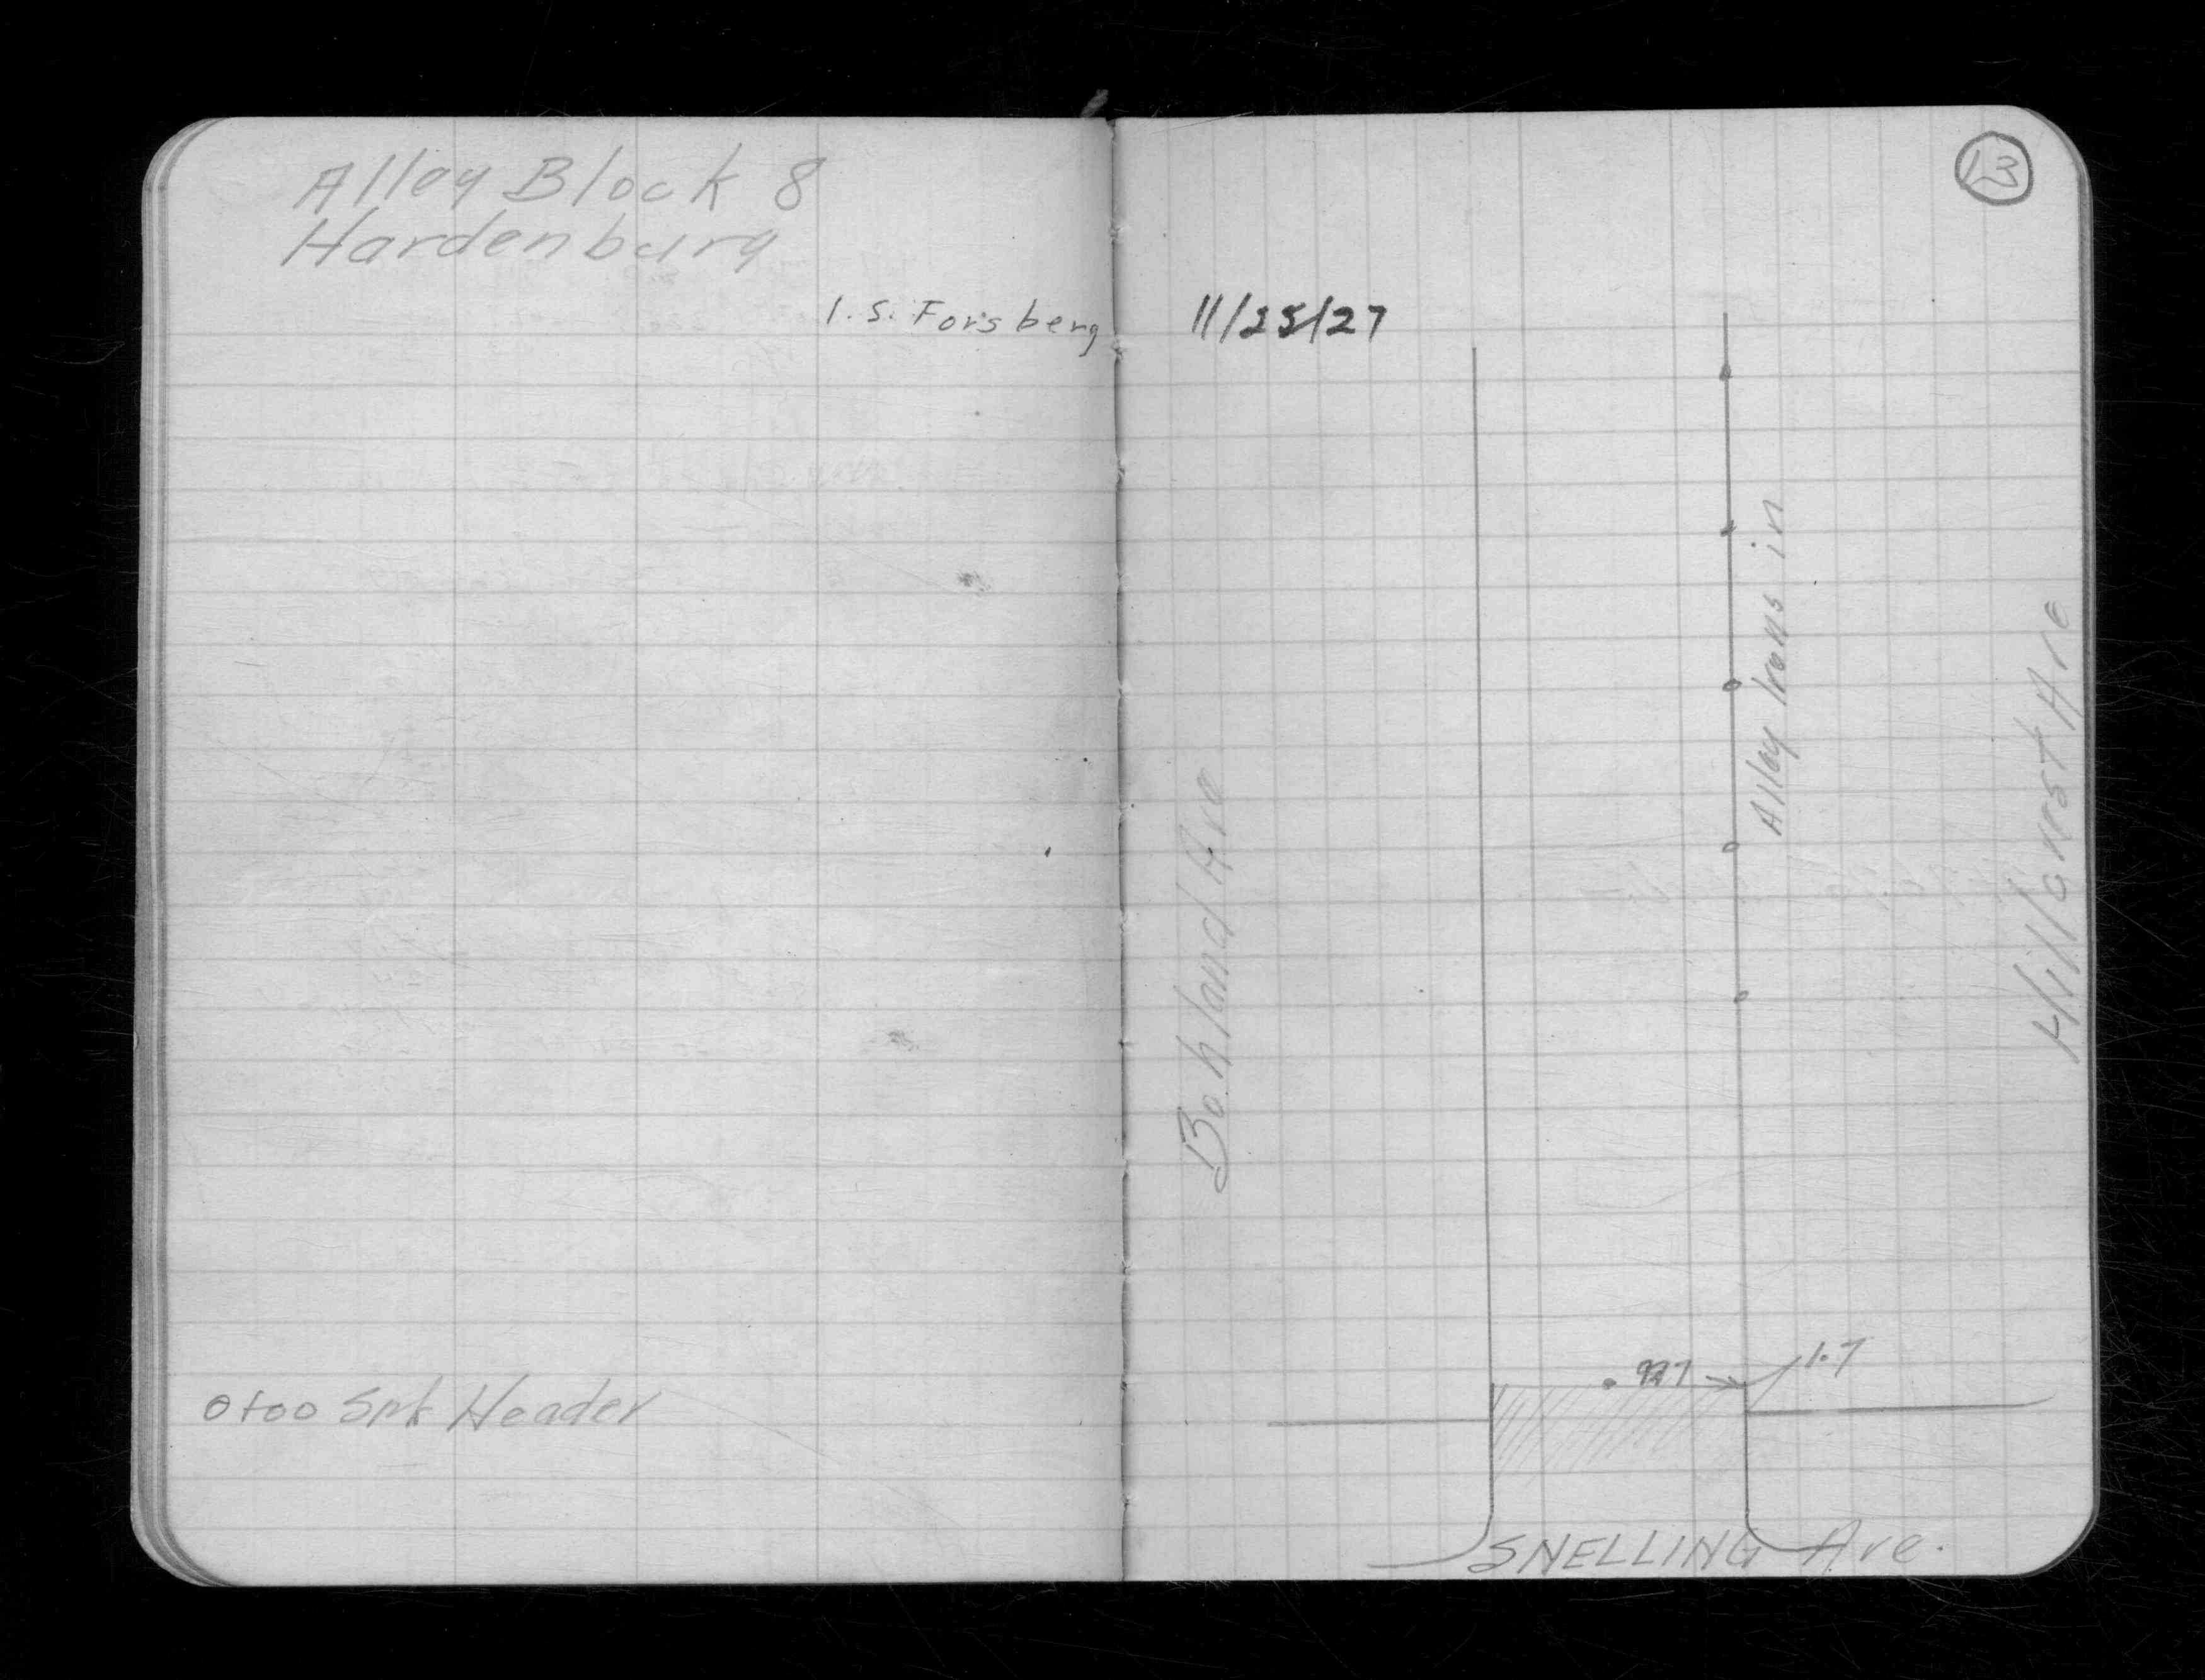 Alley Block 8
Hardenburg
I. S. Forsberg
0+00 Spk Header
13
11/25/27
Bohland Ave
Alley Irons in
Hillcrest Ave
1.7
SNELLING Ave.